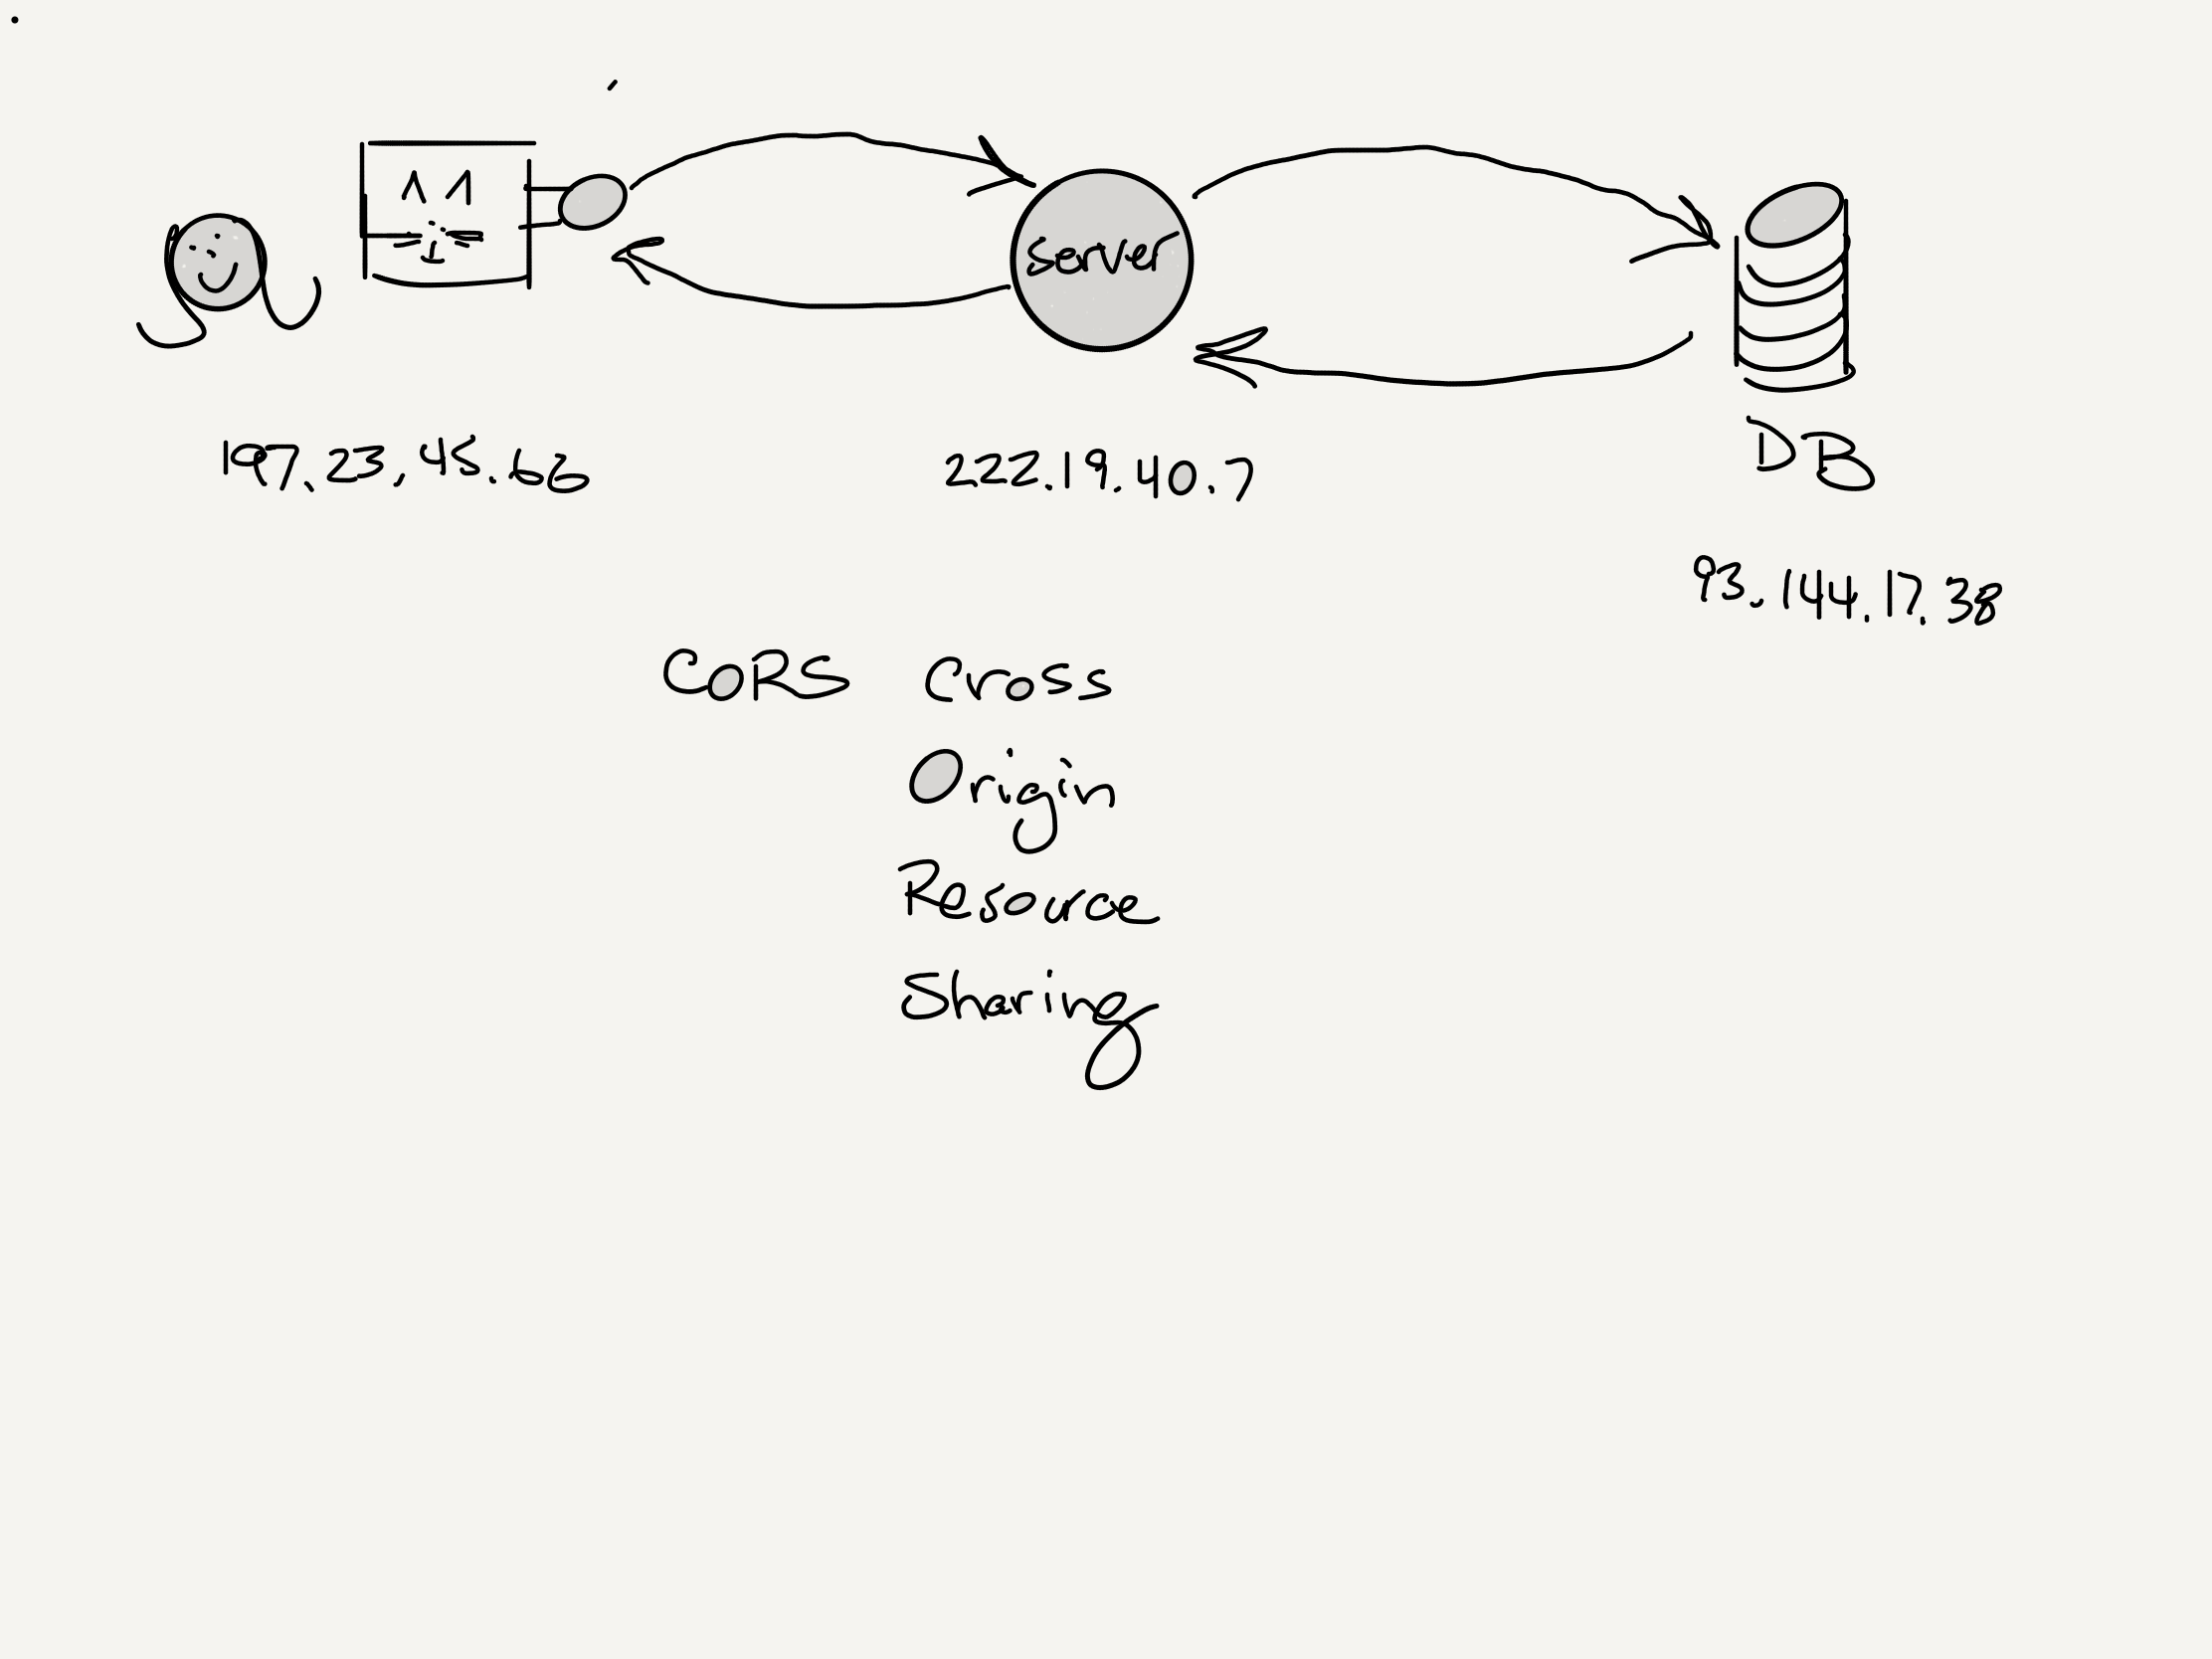 server
197.23.45.62
222.19.40.7
DB
93.144.17.38
CORS Cross
Origin
Resource
Sharing